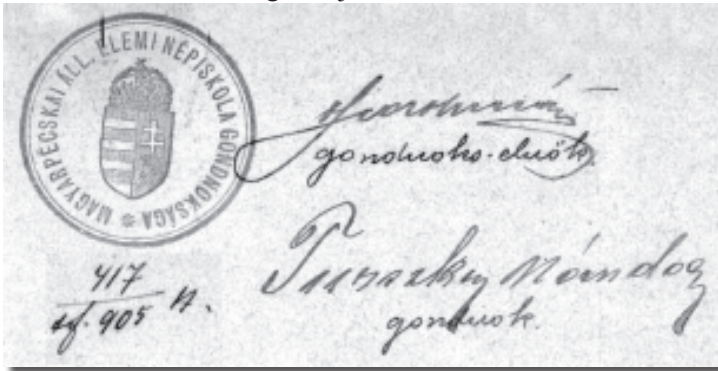 MAGYARPÉCSKAI ÁLL. ELEMI NÉPISKOLA GONDNOKSÁGA *
gondnoks. elnök
Turszky Nándor
gondnok.
417
905